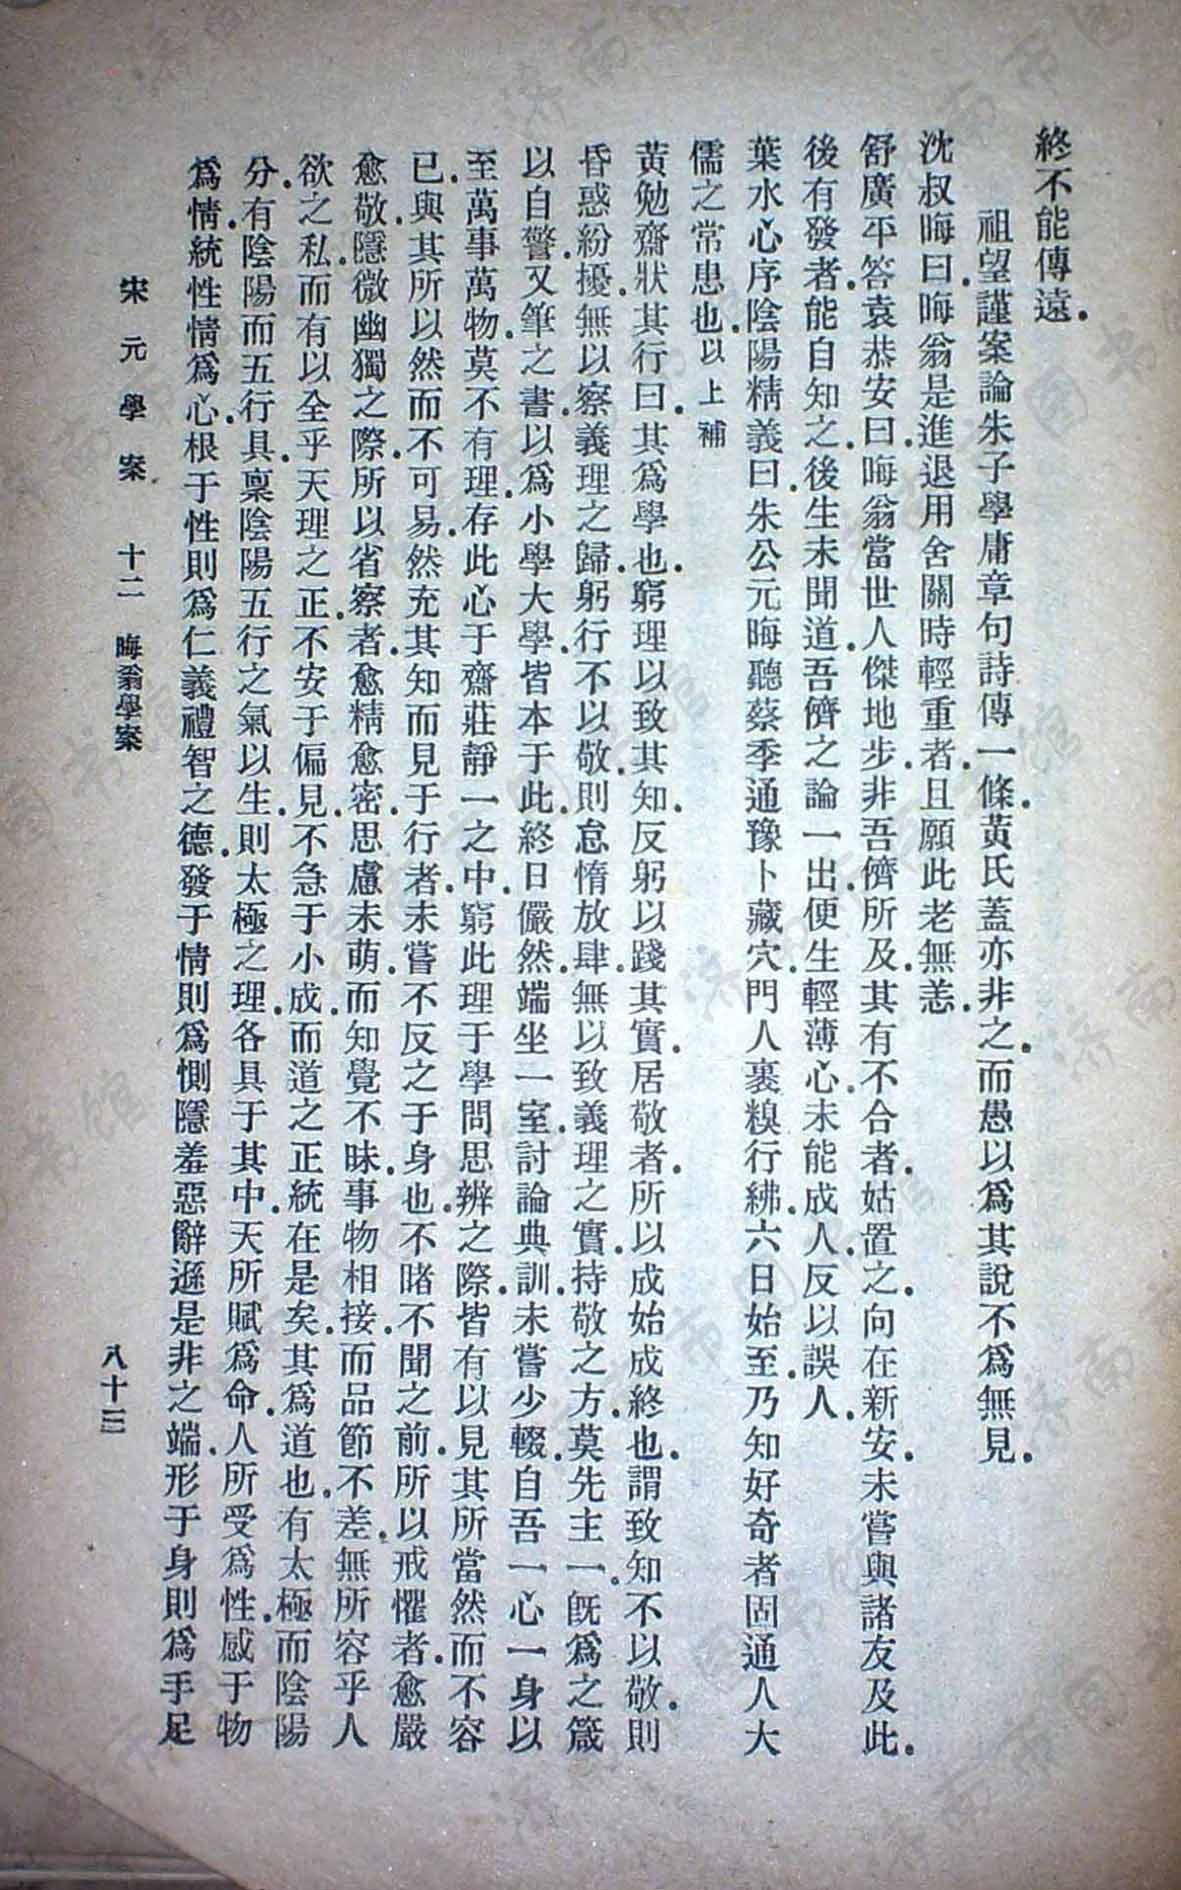 終不能傳遠.
祖望謹案論朱子學庸章句詩傳一條.黃氏蓋亦非之.而愚以爲其說不爲無見.
沈叔晦曰.晦翁是進退用舍關時輕重者.且願此老無恙.
舒廣平答袁恭安曰.晦翁當世人傑地步.非吾儕所及.其有不合者.姑置之.向在新安.未嘗與諸友及此.
後有發者.能自知之.後生未聞道.吾儕之論一出.便生輕薄心.未能成人.反以誤人.
葉水心序陰陽精義曰.朱公元晦聽蔡季通豫卜藏穴.門人裹糗行紼.六日始至.乃知好奇者固通人大
儒之常患也.以上補
黃勉齋狀其行曰.其爲學也.窮理以致其知.反躬以踐其實.居敬者.所以成始成終也.謂致知不以敬.則
昏惑紛擾.無以察義理之歸.躬行不以敬.則怠惰放肆.無以致義理之實.持敬之方.莫先主一.旣爲之箴
以自警.又筆之書.以爲小學大學.皆本于此.終日儼然.端坐一室.討論典訓.未嘗少輟.自吾一心一身以
至萬事萬物.莫不有理.存此心于齋莊靜一之中.窮此理于學問思辨之際.皆有以見其所當然而不容
已.與其所以然而不可易.然充其知而見于行者.未嘗不反之于身也.不睹不聞之前.所以戒懼者.愈嚴
愈敬.隱微幽獨之際.所以省察者.愈精愈密.思慮未萌.而知覺不昧.事物相接.而品節不差.無所容乎人
欲之私.而有以全乎天理之正.不安于偏見.不急于小成.而道之正統在是矣.其爲道也.有太極而陰陽
分.有陰陽而五行具.稟陰陽五行之氣以生.則太極之理.各具于其中.天所賦爲命.人所受爲性.感于物
爲情.統性情爲心.根于性則爲仁義禮智之德.發于情則爲惻隱羞惡辭遜是非之端.形于身則爲手足
宋元學案 十二 晦翁學案 八十三